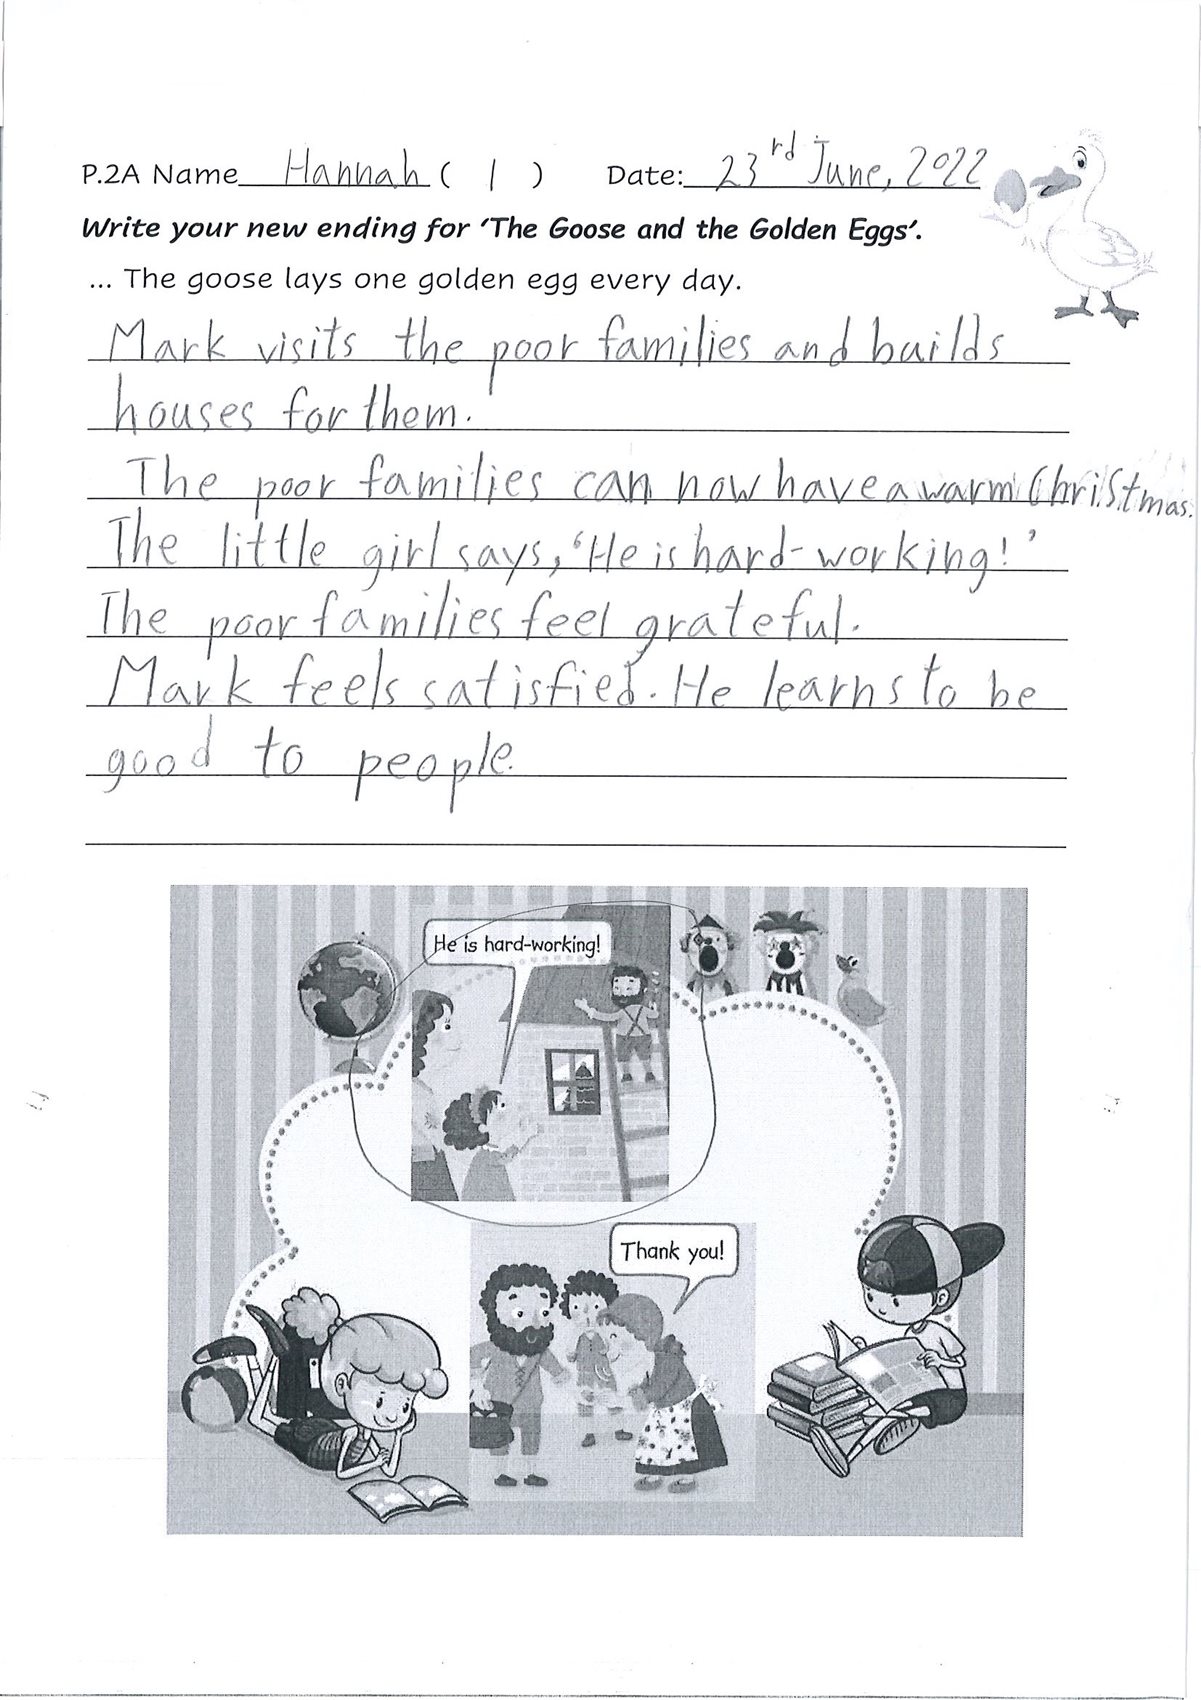 P.2A Name Hannah ( 1 ) Date: 23rd June, 2022
Write your new ending for ‘The Goose and the Golden Eggs’.
... The goose lays one golden egg every day.
Mark visits the poor families and builds
houses for them.
The poor families can now have a warm Christmas.
The little girl says, ‘He is hard-working!’
The poor families feel grateful.
Mark feels satisfied. He learns to be
good to people.
He is hard-working!
Thank you!